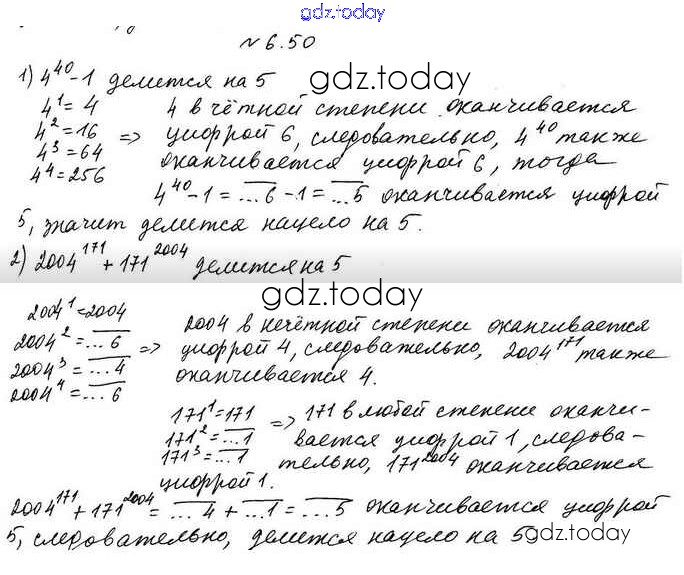 gdz.today
№ 6.50
1) 4⁴⁰-1 делится на 5 gdz.today
4¹ = 4 4 в чётной степени оканчивается
4² = 16 => цифрой 6, следовательно, 4⁴⁰ также
4³ = 64 оканчивается цифрой 6, тогда
4⁴ = 256
4⁴⁰-1 = ...6 - 1 = ...5 оканчивается цифрой
5, значит делится нацело на 5.
2) 2004¹⁷¹ + 171²⁰⁰⁴ делится на 5
gdz.today
2004¹ = 2004 2004 в нечётной степени оканчивается
2004² = ...6 => цифрой 4, следовательно, 2004¹⁷¹ также
2004³ = ...4 оканчивается 4.
2004⁴ = ...6
171¹ = 171 => 171 в любой степени оканчи-
171² = ...1 вается цифрой 1, следова-
171³ = ...1 тельно, 171²⁰⁰⁴ оканчивается
цифрой 1.
2004¹⁷¹ + 171²⁰⁰⁴ = ...4 + ...1 = ...5 оканчивается цифрой
5, следовательно, делится нацело на 5 gdz.today